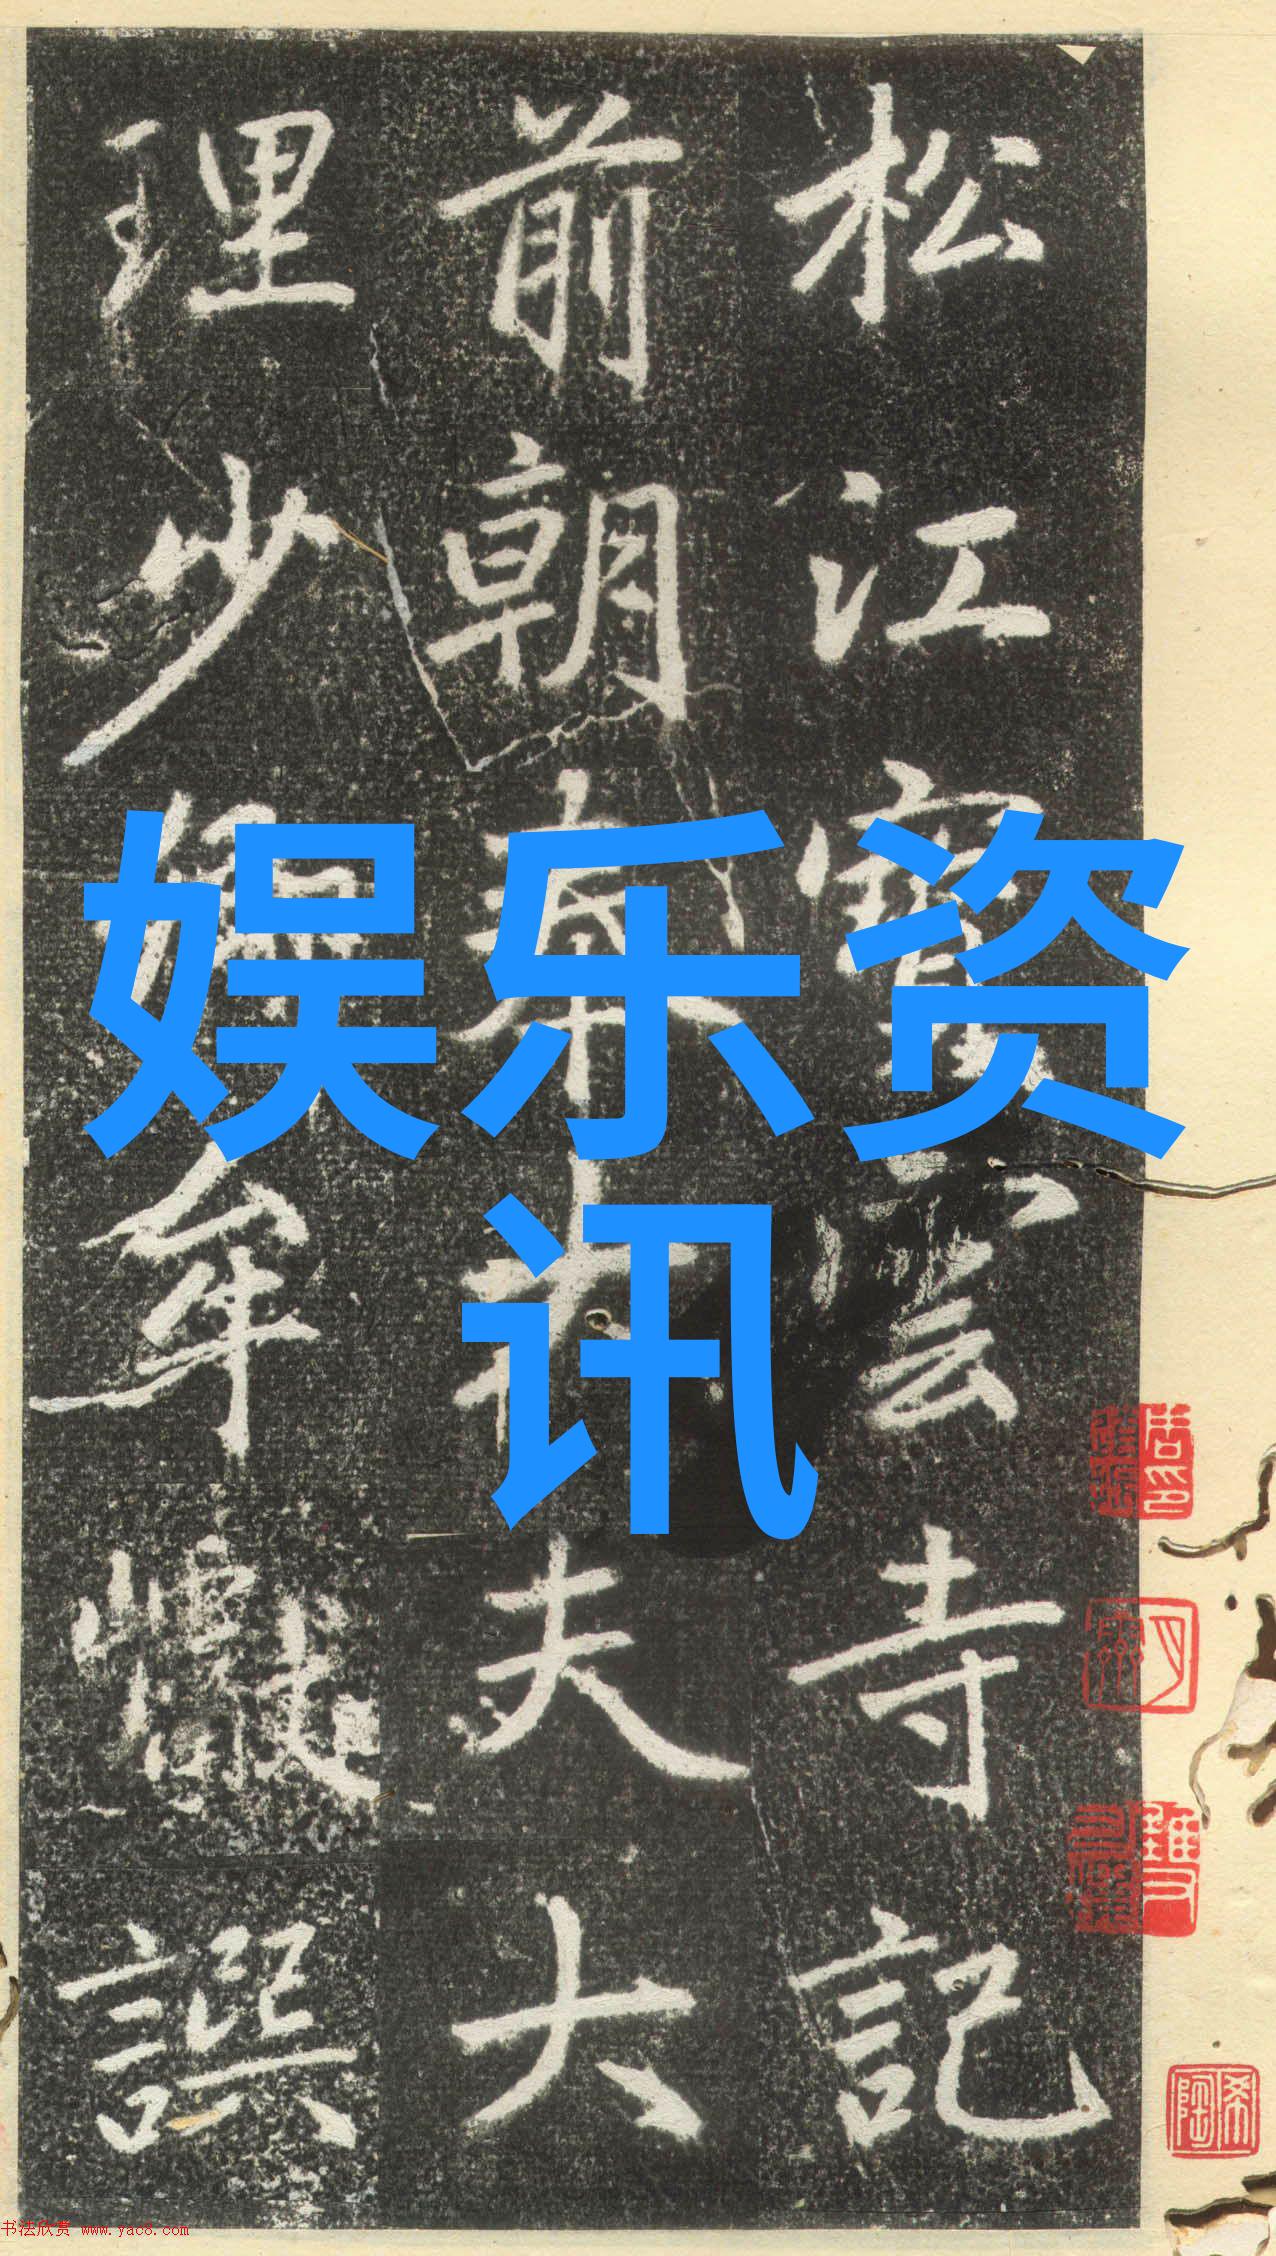 松江寶雲寺記
前朝奉大夫大
理少卿牟譔
娱乐资
讯
书法欣赏 www.yac8.com